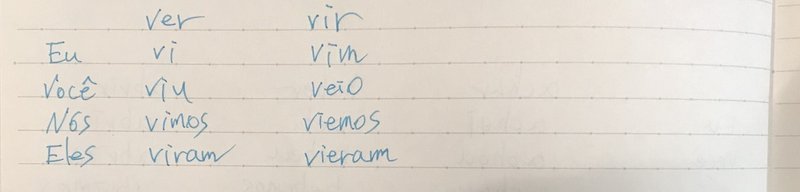 ver vir
Eu vi vim
Você viu veio
Nós vimos viemos
Eles viram vieram